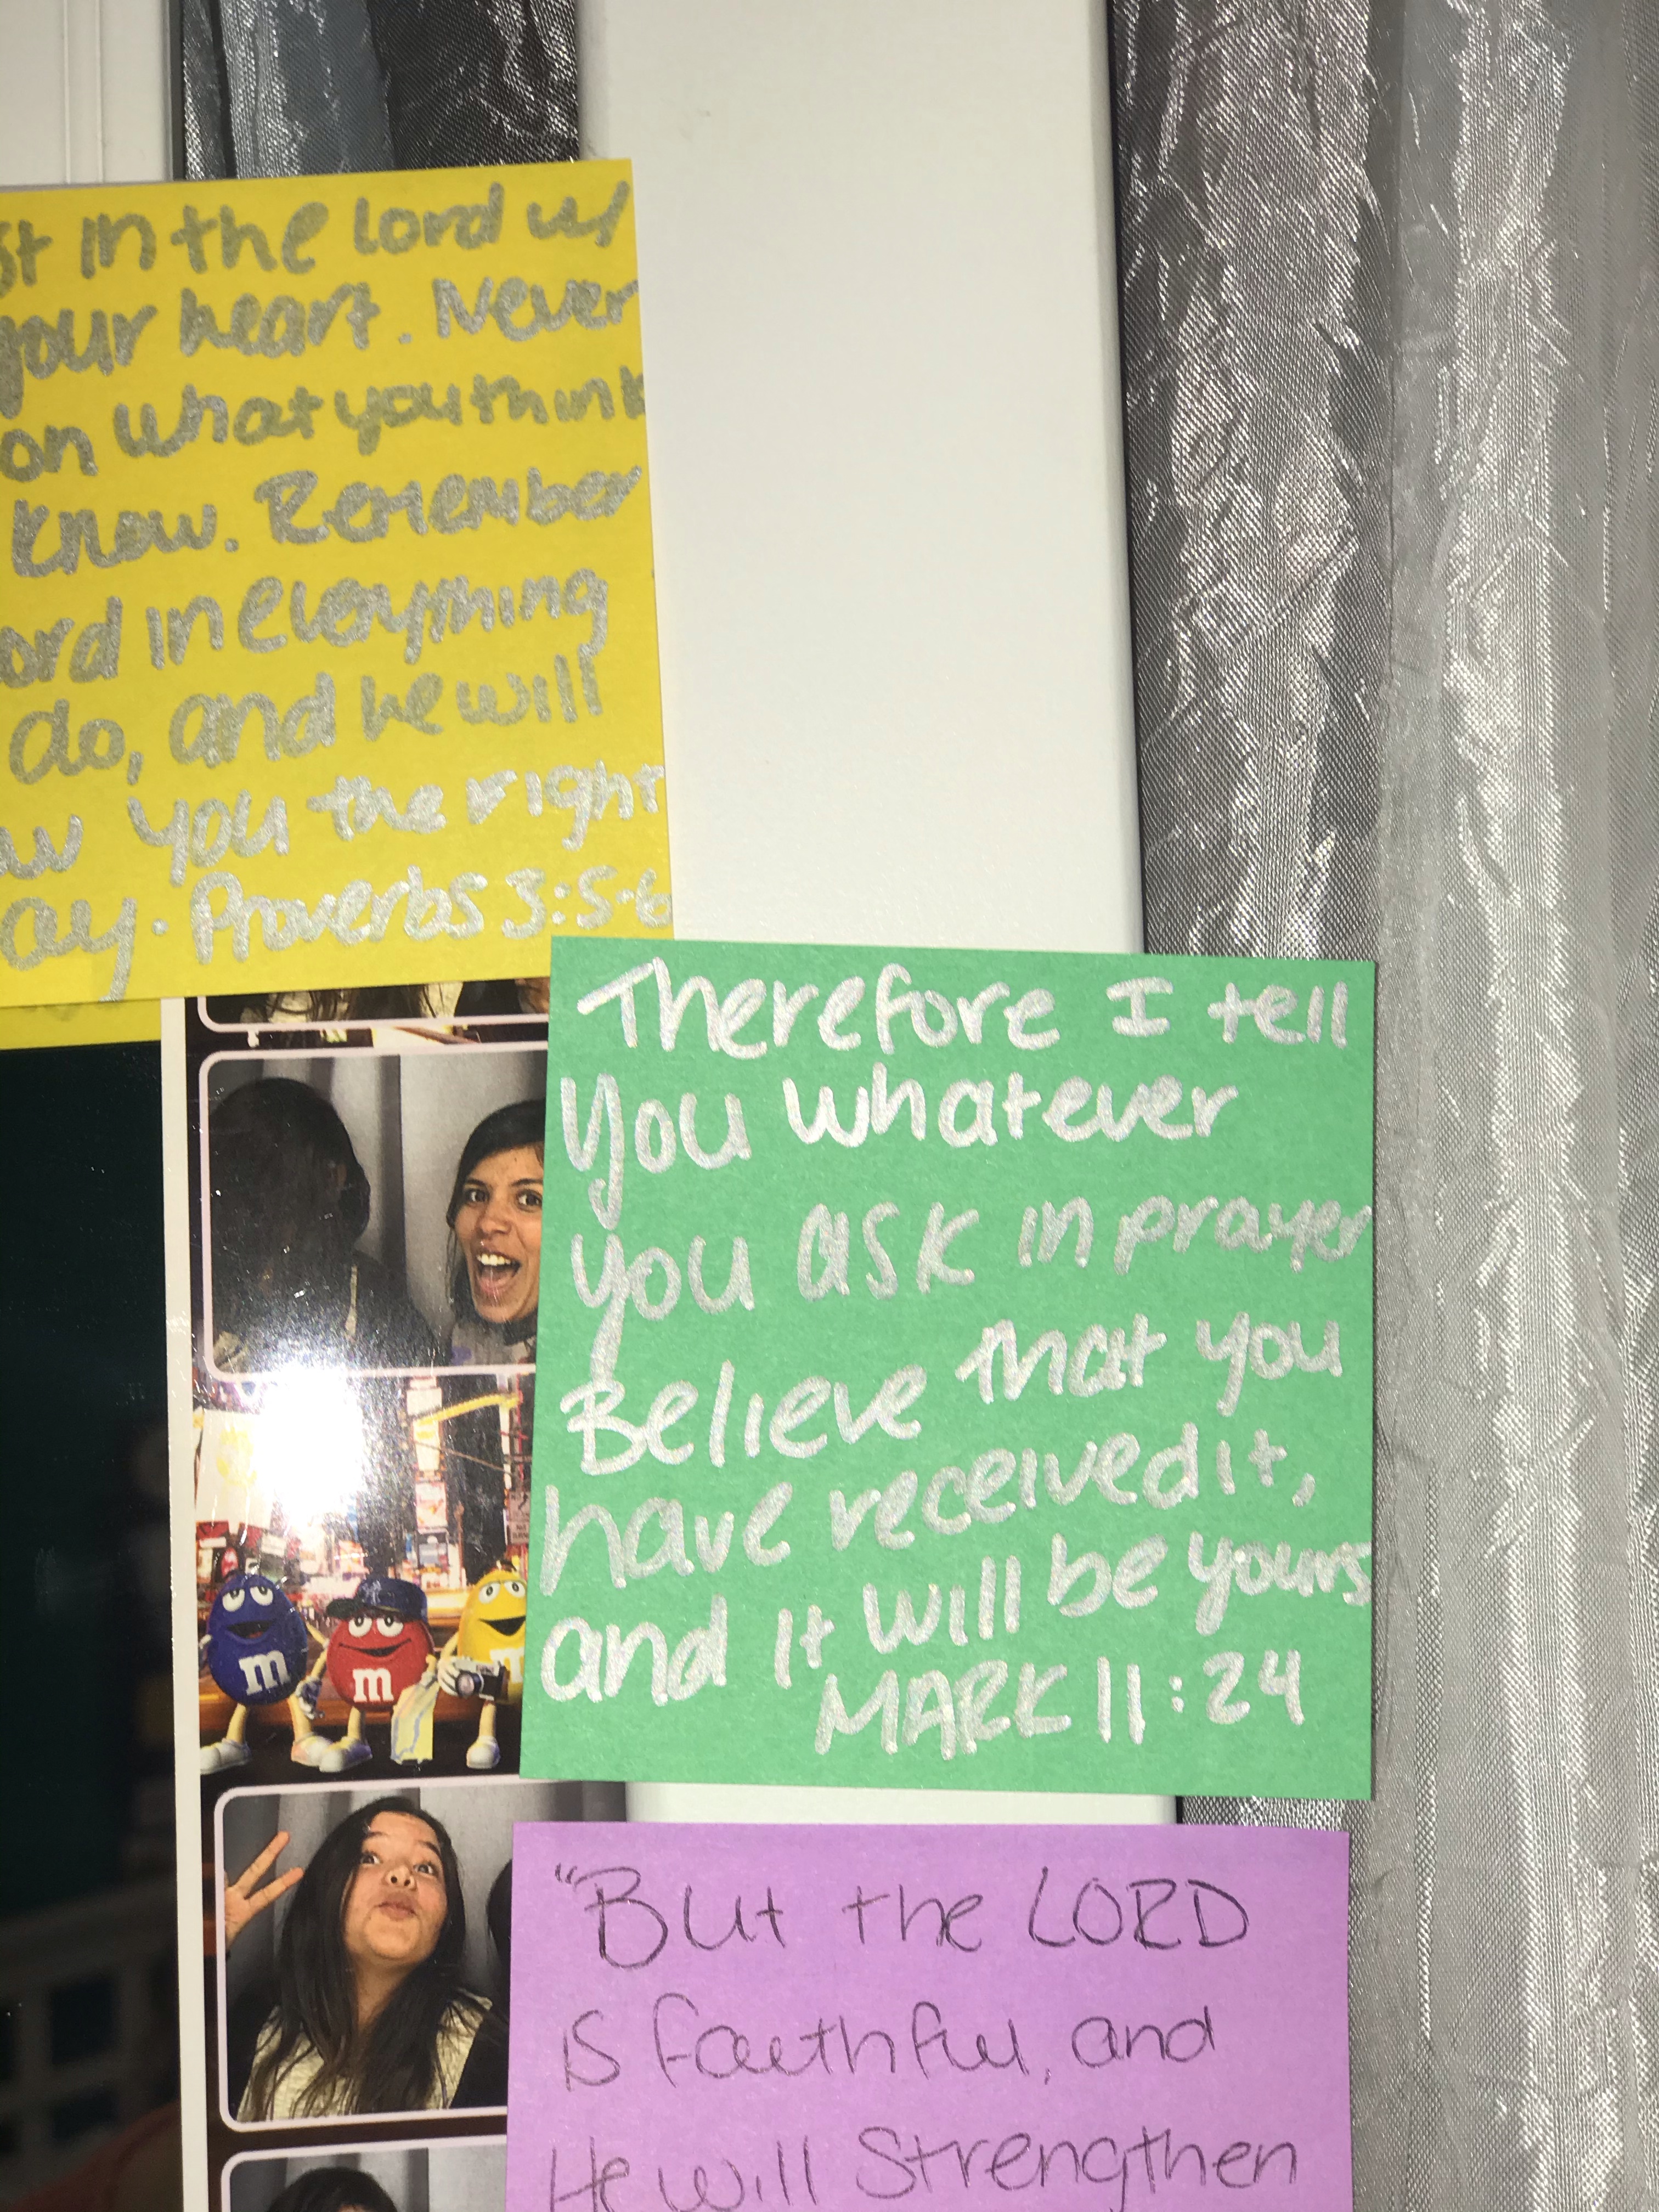 st in the Lord w/
your heart. Never
on what you think
know. Remember
ord in everything
do, and he will
w you the right
ay. Proverbs 3:5-6
Therefore I tell
you whatever
you ask in prayer
Believe that you
have received it,
and it will be yours
MARK 11:24
m
m
m
"But the LORD
is faithful, and
He will Strengthen